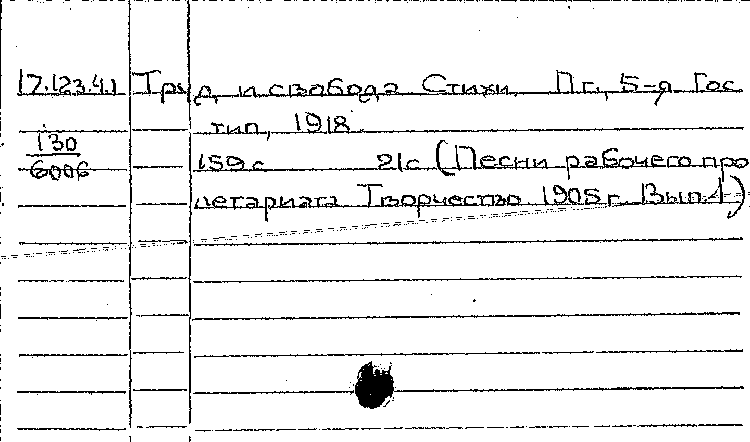 17.123.4.1 Труд и свобода Стихи. Пг., 5-я Гос
тип, 1918.
130
6006
159 с 21с (Песни рабочего про
летариата Творчество 1905 г. Вып.1)